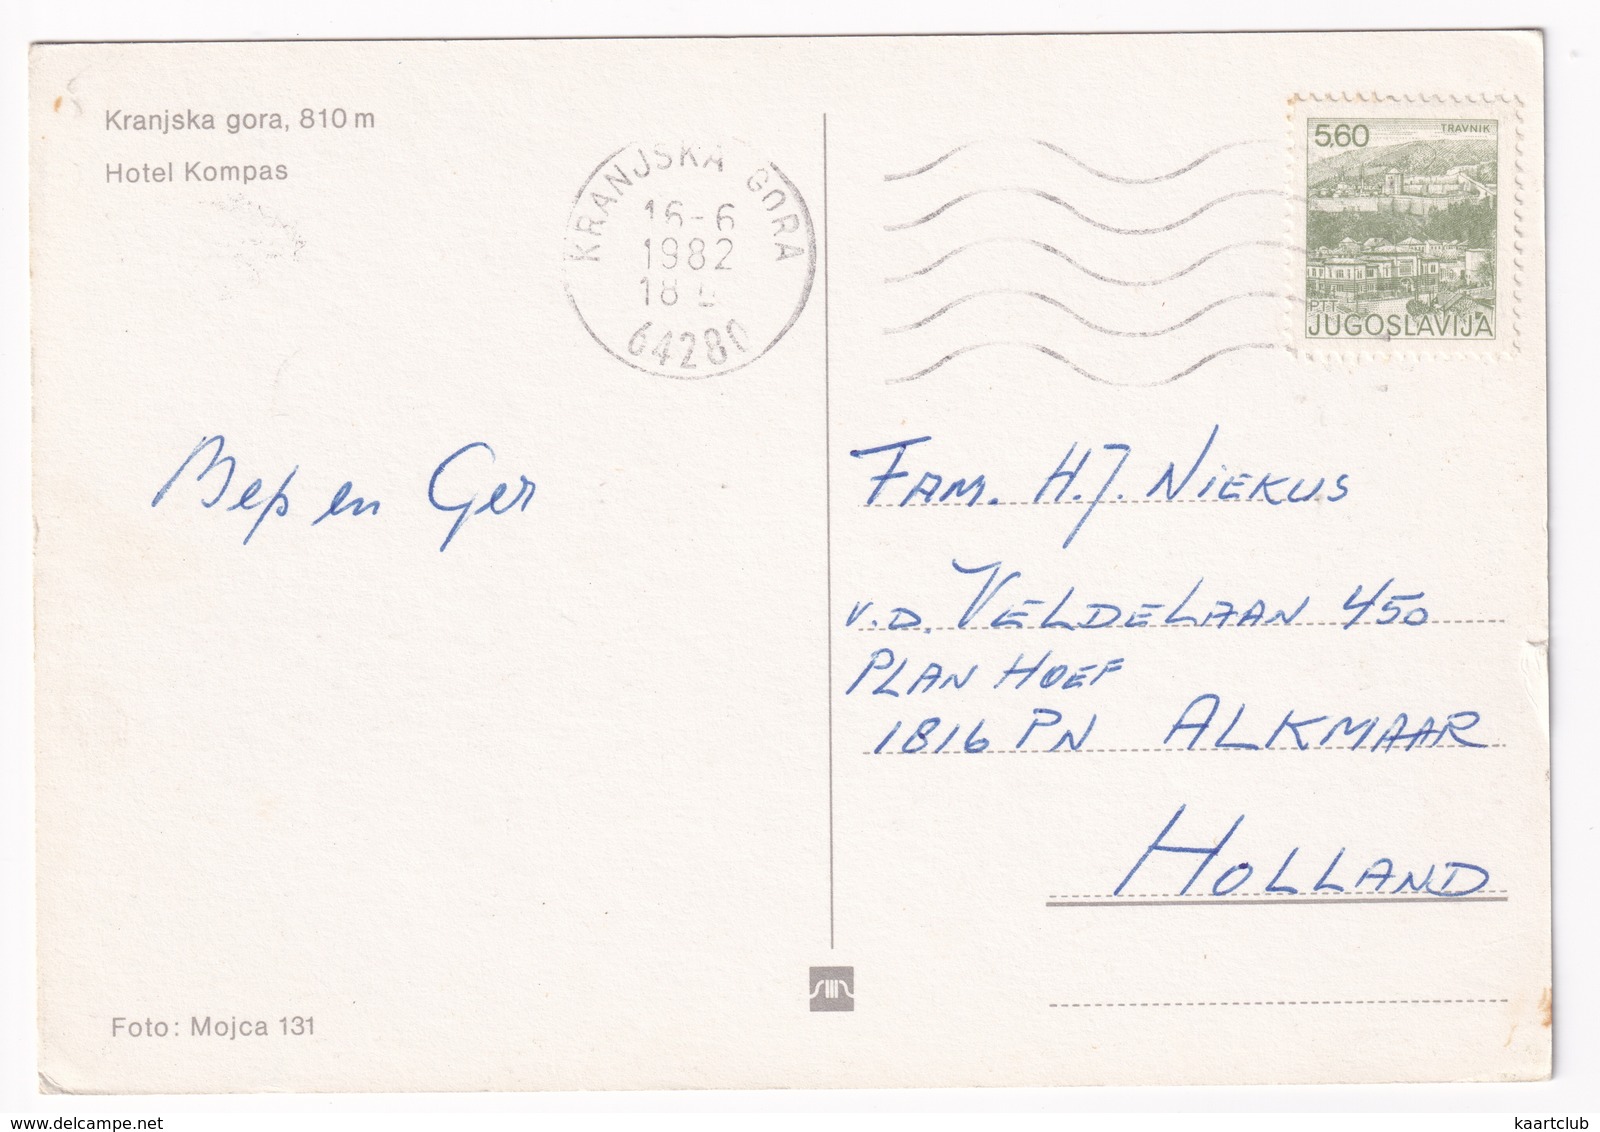 Kranjska gora, 810 m
Hotel Kompas
KRANJSKA GORA
16-6
1982
18
64280
5,60
TRAVNIK
PTT
JUGOSLAVIJA
Bep en Ger
FAM. H.J. NIEKUS
V.D. VELDELAAN 450
PLAN HOEF
1816 PN ALKMAAR
HOLLAND
Foto: Mojca 131
www.delcampe.net
kaartclub